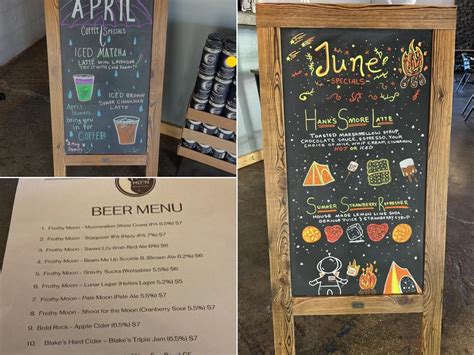 APRIL
COFFEE SPECIALS
ICED MATCHA
LATTE
ICED BROWN
SUGAR CINNAMON
LATTE
APRIL
BRING YOU
IN FOR
COFFEE!
June
SPECIALS
HANK'S S'MORE LATTE
TOASTED MARSHMALLOW SYRUP,
CHOCOLATE SAUCE, ESPRESSO, YOUR
CHOICE OF MILK, WHIP CREAM, CINNAMON
HOT OR ICED
SUMMER STRAWBERRY REFRESHER
HOUSE MADE LEMON LIME SODA,
JUICE & STRAWBERRY SYRUP
BEER MENU
1. Frothy Moon - Moonwalker (West Coast IPA 6.5%) $7
2. Frothy Moon - Stargazer IPA (Hazy IPA 7%) $7
3. Frothy Moon - Sweet Lily Irish Red Ale 6%) $6
4. Frothy Moon - Beam Me Up Scottie B. (Brown Ale 6.2%)
5. Frothy Moon - Gravity Socks (Weissbier 5.5%) $6
6. Frothy Moon - Lunar Lager (Helles Lager 5.2%) $5
7. Frothy Moon - Pale Moon (Pale Ale 5.5%) $7
8. Frothy Moon - Shoot for the Moon (Cranberry Sour 5.5%) $7
9. Bold Rock - Apple Cider (6.5%) $7
10. Blake's Hard Cider - Blake's Triple Jam (6.5%) $7